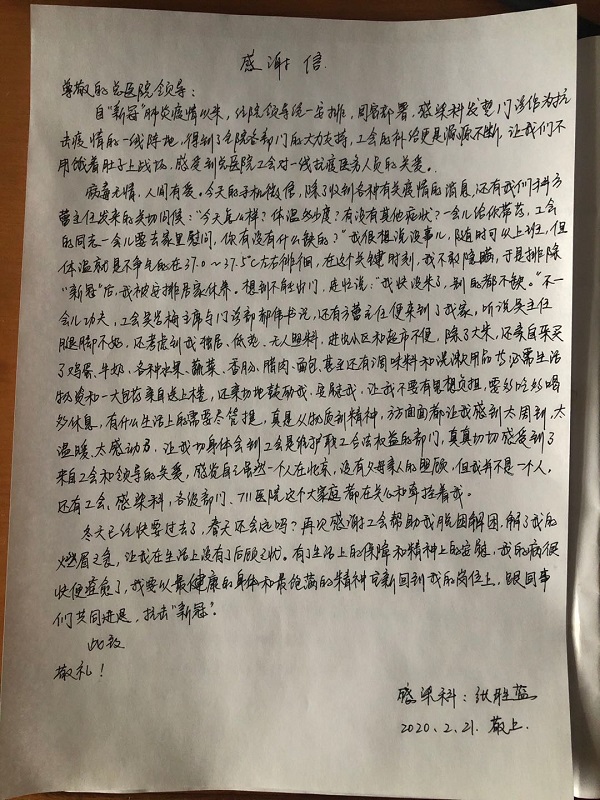 感谢信
尊敬的总医院领导：
自“新冠”肺炎疫情以来，住院领导统一安排，周密部署，感染科发热门诊作为抗
击疫情的一线阵地，得到了全院各部门的大力支持，工会的补给更是源源不断，让我们不
用饿着肚子上战场，感受到总医院工会对一线抗疫医务人员的关爱。
病毒无情，人间有爱。今天的手机微信，除了收到各种有关疫情的消息，还有我们科方
蕾主任发来的关切问候：“今天怎么样？体温多少度？有没有其他症状？一会儿给你带药，工会
的同志一会儿要去家里慰问，你有没有什么缺的？”我很想说没事儿，随时可以上班，但
体温就是不争气的在37.0～37.5℃左右徘徊，在这个关键时刻，我不敢隐瞒，于是排除
“新冠”后，我被安排居家休养。想到不能出门，连忙说：“我快没米了，别的都不缺。”不一
会儿功夫，工会吴主席与门诊部郝伟书记，还有方蕾主任便来到了我家，听说吴主任
腿脚不好，还考虑到我独居、低热、无人照料，进出小区和超市不便，除了大米，还亲自采买
了鸡蛋、牛奶、各种水果、蔬菜、香肠、腊肉、面包，甚至还有调味料和洗漱用品等必需生活
物资和一大包药亲自送上楼，还亲切地鼓励我，安慰我，让我不要有思想负担，要多吃多喝
多休息，有什么生活上的需要尽管提，真是从物质到精神，方方面面都让我感到太周到、太
温暖、太感动了，让我切身体会到工会是维护职工合法权益的部门，真真切切感受到了
来自工会和领导的关爱，感觉自己虽然一个人在北京，没有父母亲人的照顾，但我并不是一个人，
还有工会、感染科，各级部门、711医院这个大家庭都在关心和牵挂着我。
冬天已经快要过去了，春天还会远吗？再次感谢工会帮助我脱困解困，解了我的
燃眉之急，让我在生活上没有了后顾之忧。有了生活上的保障和精神上的安慰，我的病很
快便痊愈了，我要以最健康的身体和最饱满的精神重新回到我的岗位上，跟同事
们共同进退，抗击“新冠”。
此致
敬礼！
感染科：张胜蓝
2020.2.21. 敬上